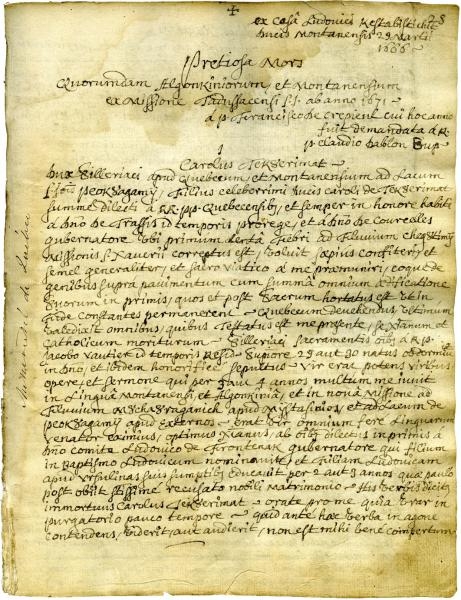 ✝
28
ex Casâ Ludovici Kestabistichit
Ducis Montanensis 29 Martii
1686 ~
Pretiosa Mors
Quorumdam Algonkiniorum, et Montanensium
ex Missione Tadussacensi S.J. ab anno 1671 ~
a p. Francisco de Crepieul cui hoc anno
fuit demandata a R.
p. Claudio Dablon Sup ~
1
Carolus Tek8erimat ~
Dux Silleriaci apud Quebecum, et Montanensium ad Lacum
filius celeberrimi Ducis Caroli de Tek8erimat
summe dilecti a RR. pp. Quebecensib9, et semper in honore habiti
a Dno de Trassis id temporis prorege, et a Dno de Courcelles
gubernatore ubi primum lentâ Febri ad Fluvium
Missionis S. Xaverii correptus est, voluit sæpius confiteri, et
semel generaliter, et sacro viatico a me præmuniri, eoque de
genibus supra pavimentum cum summâ omnium ædificatione
suorum in primis, quos et post sacrum hortatus est ut in
fide constantes permanerent ~ Quebecum devehendus ultimum
valedixit omnibus, quibus testatus est me præsente, se Xianum et
Catholicum moriturum ~ Silleriaci sacramentis a R. p.
Jacobo Vautier id temporis Superiore 29 aut 30 natus obdormivit
in Dno, et ibidem honorificè sepultus ~ vir erat potens viribus
opere, et sermone qui per 3 aut 4 annos multum me iuvit
in Linguâ Montanensi, et Algonkiniâ, et in novâ Missione ad
Fluvium apud Mistasinios, et ad Lacum de
apud Externos ~ erat vir omnium fere Linguarum
venator eximius, optimus Xianus, ab oibus dilectus in primis a
Dno Comite Ludovico de Frontenak gubernatore qui filium
in Baptismo Ludovicum nominavit, et filiam Ludovicam
apud Ursulinas suis sumptib9 educavit per 2 aut 3 annos quæ paulo
post obiit recusato nobili Matrimonio ~ His verbis
immortuus Carolus Tek8erimat ~ orate pro me quia ero in
purgatorio pauco tempore ~ quid ante hæc verba in agone
contendens, viderit, aut audierit, non est mihi bene compertum